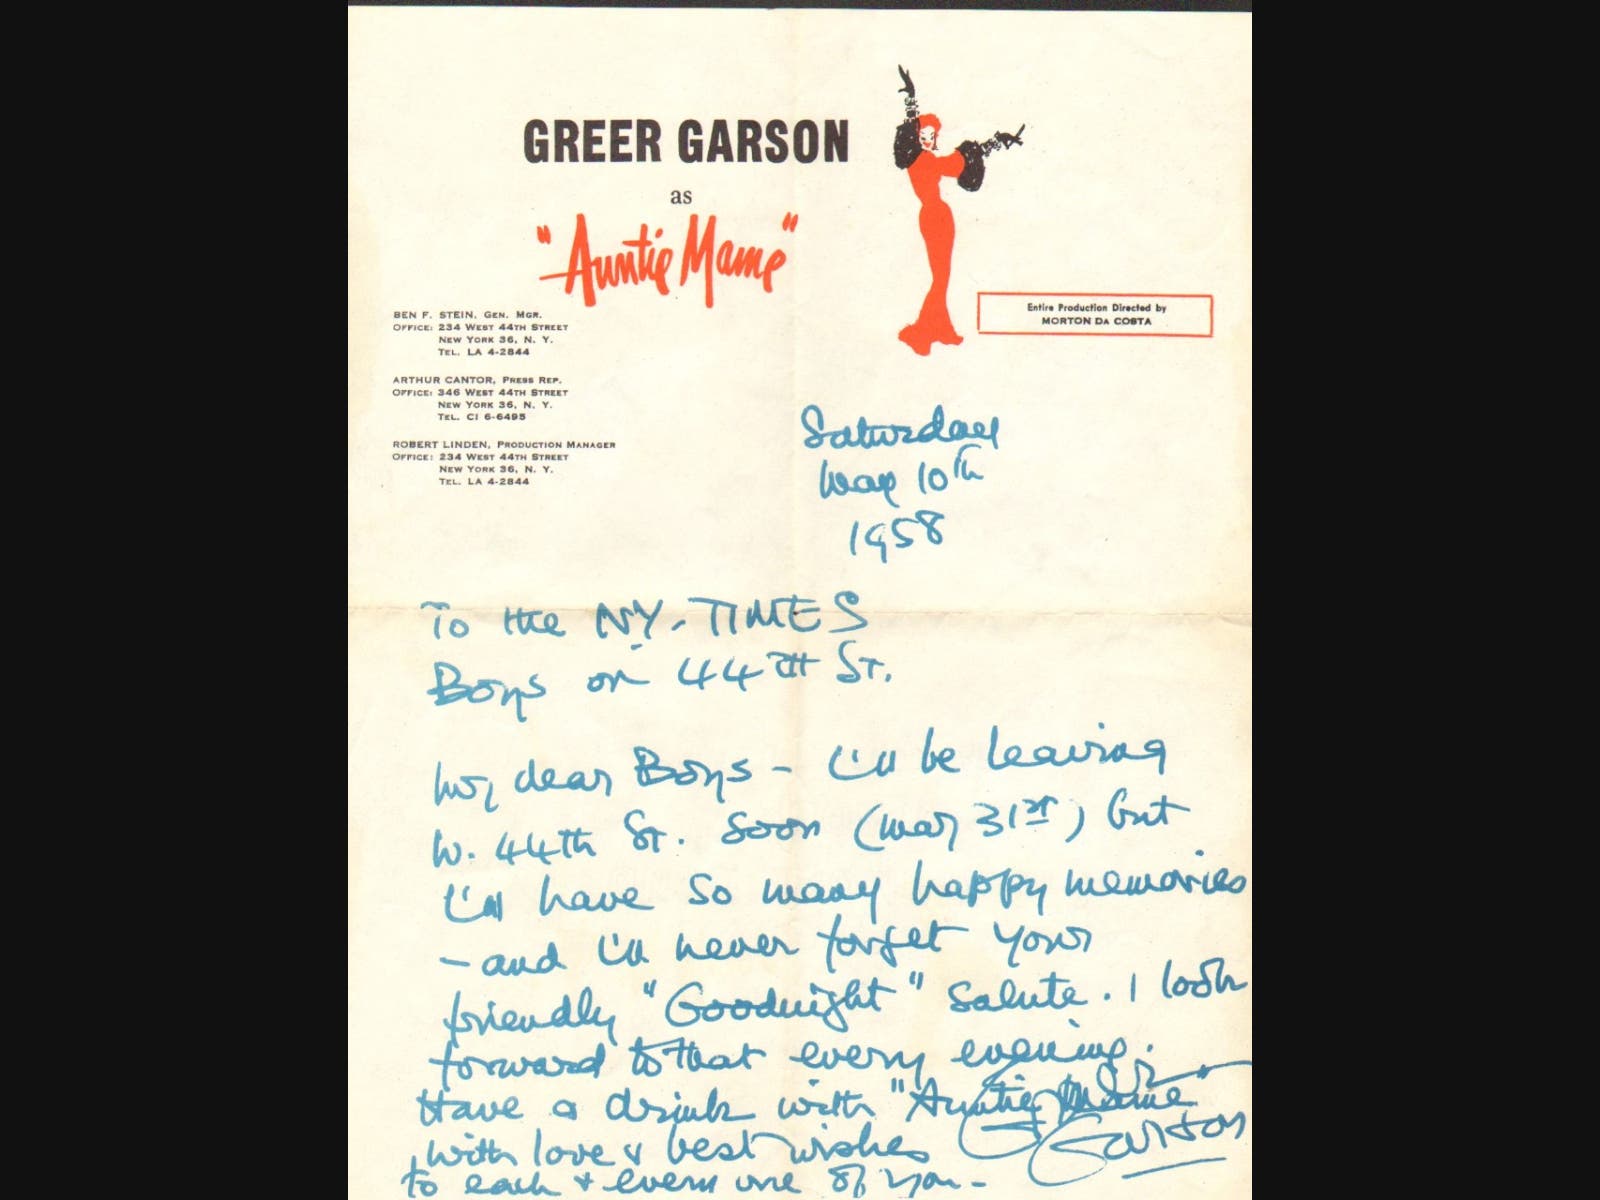 GREER GARSON
as
"Auntie Mame"
BEN F. STEIN, GEN. MGR.
OFFICE: 234 WEST 44TH STREET
NEW YORK 36, N. Y.
TEL. LA 4-2844
ARTHUR CANTOR, PRESS REP.
OFFICE: 346 WEST 44TH STREET
NEW YORK 36, N. Y.
TEL. CI 6-6495
ROBERT LINDEN, PRODUCTION MANAGER
OFFICE: 234 WEST 44TH STREET
NEW YORK 36, N. Y.
TEL. LA 4-2844
Entire Production Directed by
MORTON DA COSTA
Saturday
May 10th
1958
To the NY. TIMES
Boys on 44TH ST.
My dear Boys - I'll be leaving
W. 44th St. soon (May 31st) but
I'll have so many happy memories
- and I'll never forget your
friendly "Goodnight" salute. I look
forward to that every evening.
Have a drink with "Auntie Mame"
with love & best wishes
to each & every one of you -
Greer Garson